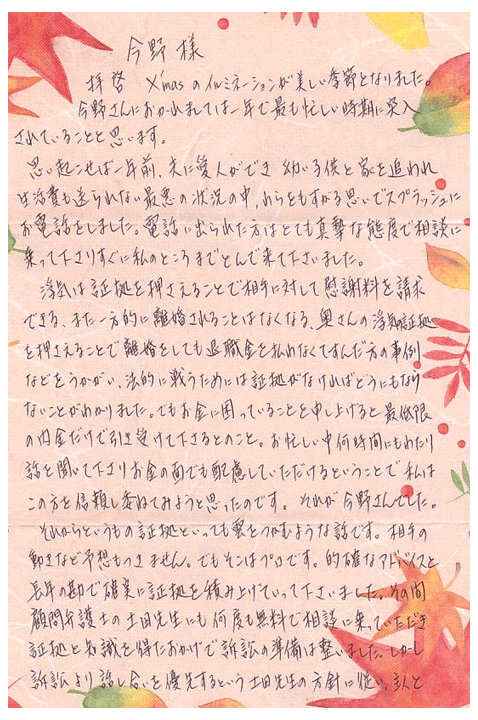 今野様
拝啓 X'masのイルミネーションが美しい季節となりました。
今野さんにおかれましては一年で最も忙しい時期に突入
されていることと思います。
思い起こせば一年前、夫に愛人ができ 幼い子供と家を追われ
生活費も送られない最悪の状況の中、わらをもすがる思いでスプラッシュに
お電話をしました。電話に出られた方はとても真摯な態度で相談に
乗って下さりすぐに私のところまでとんで来て下さいました。
浮気は証拠を押さえることで相手に対して慰謝料を請求
できる、また一方的に離婚されることはなくなる、奥さんの浮気証拠
を押さえることで離婚をしても退職金を払わなくてすんだ方の事例
などをうかがい、法的に戦うためには証拠がなければどうにもなら
ないことがわかりました。でもお金に困っていることを申し上げると最低限
の内金だけで引き受けて下さるとのこと。お忙しい中何時間にもわたり
話を聞いて下さりお金の面でも配慮していただけるということで私は
この方を信頼し委ねてみようと思ったのです。それが今野さんでした。
それからというもの証拠といっても雲をつかむような話です。相手の
動きなど予想もつきません。でもそこはプロです。的確なアドバイスと
長年の勘で確実に証拠を積み上げていって下さいました。その間
顧問弁護士の土田先生にも何度も無料で相談に乗っていただき
証拠と知識を得たおかげで訴訟の準備は整いました。しかし
訴訟より話し合いを優先するという土田先生の方針に従い、主人と